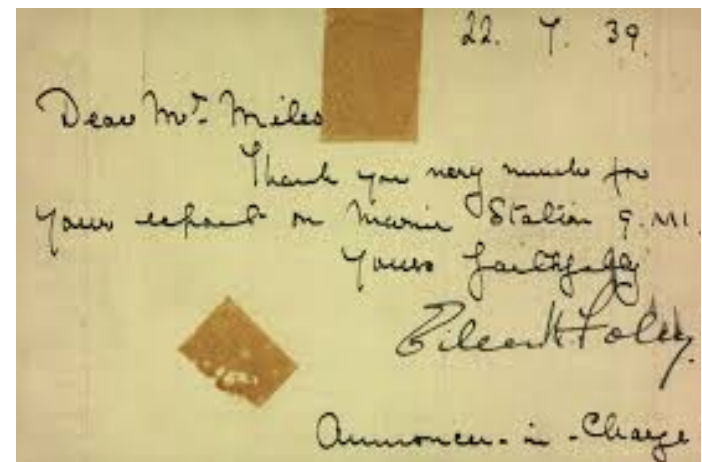 22. 7. 39.
Dear Mr. Miles
Thank you very much for
your report on Marine Station 9.MI.
Yours faithfully
Eileen Foley.
Announcer-in-Charge